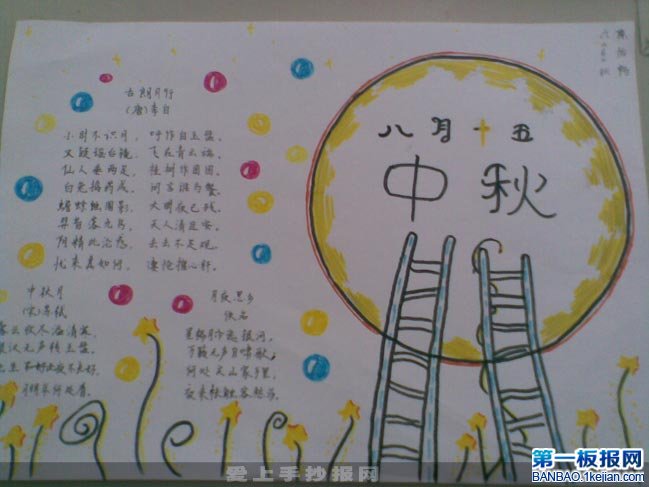 古朗月行
(唐)李白
小时不识月，呼作白玉盘。
又疑瑶台镜，飞在青云端。
仙人垂两足，桂树作团团。
白兔捣药成，问言谁与餐。
蟾蜍蚀圆影，大明夜已残。
羿昔落九乌，天人清且安。
阴精此沦惑，去去不足观。
忧来其如何，凄怆摧心肝。
中秋月
(宋)苏轼
暮云收尽溢清寒，
银汉无声转玉盘。
此生 不好，
明年何处看。
月夜思乡
佚名
星稀月冷逸银河，
万籁无声自啸歌。
何处关山家万里，
夜来枨触客愁多。
八月十五
中秋
爱上手抄报网
第一板报网
BANBAO.1kejian.com